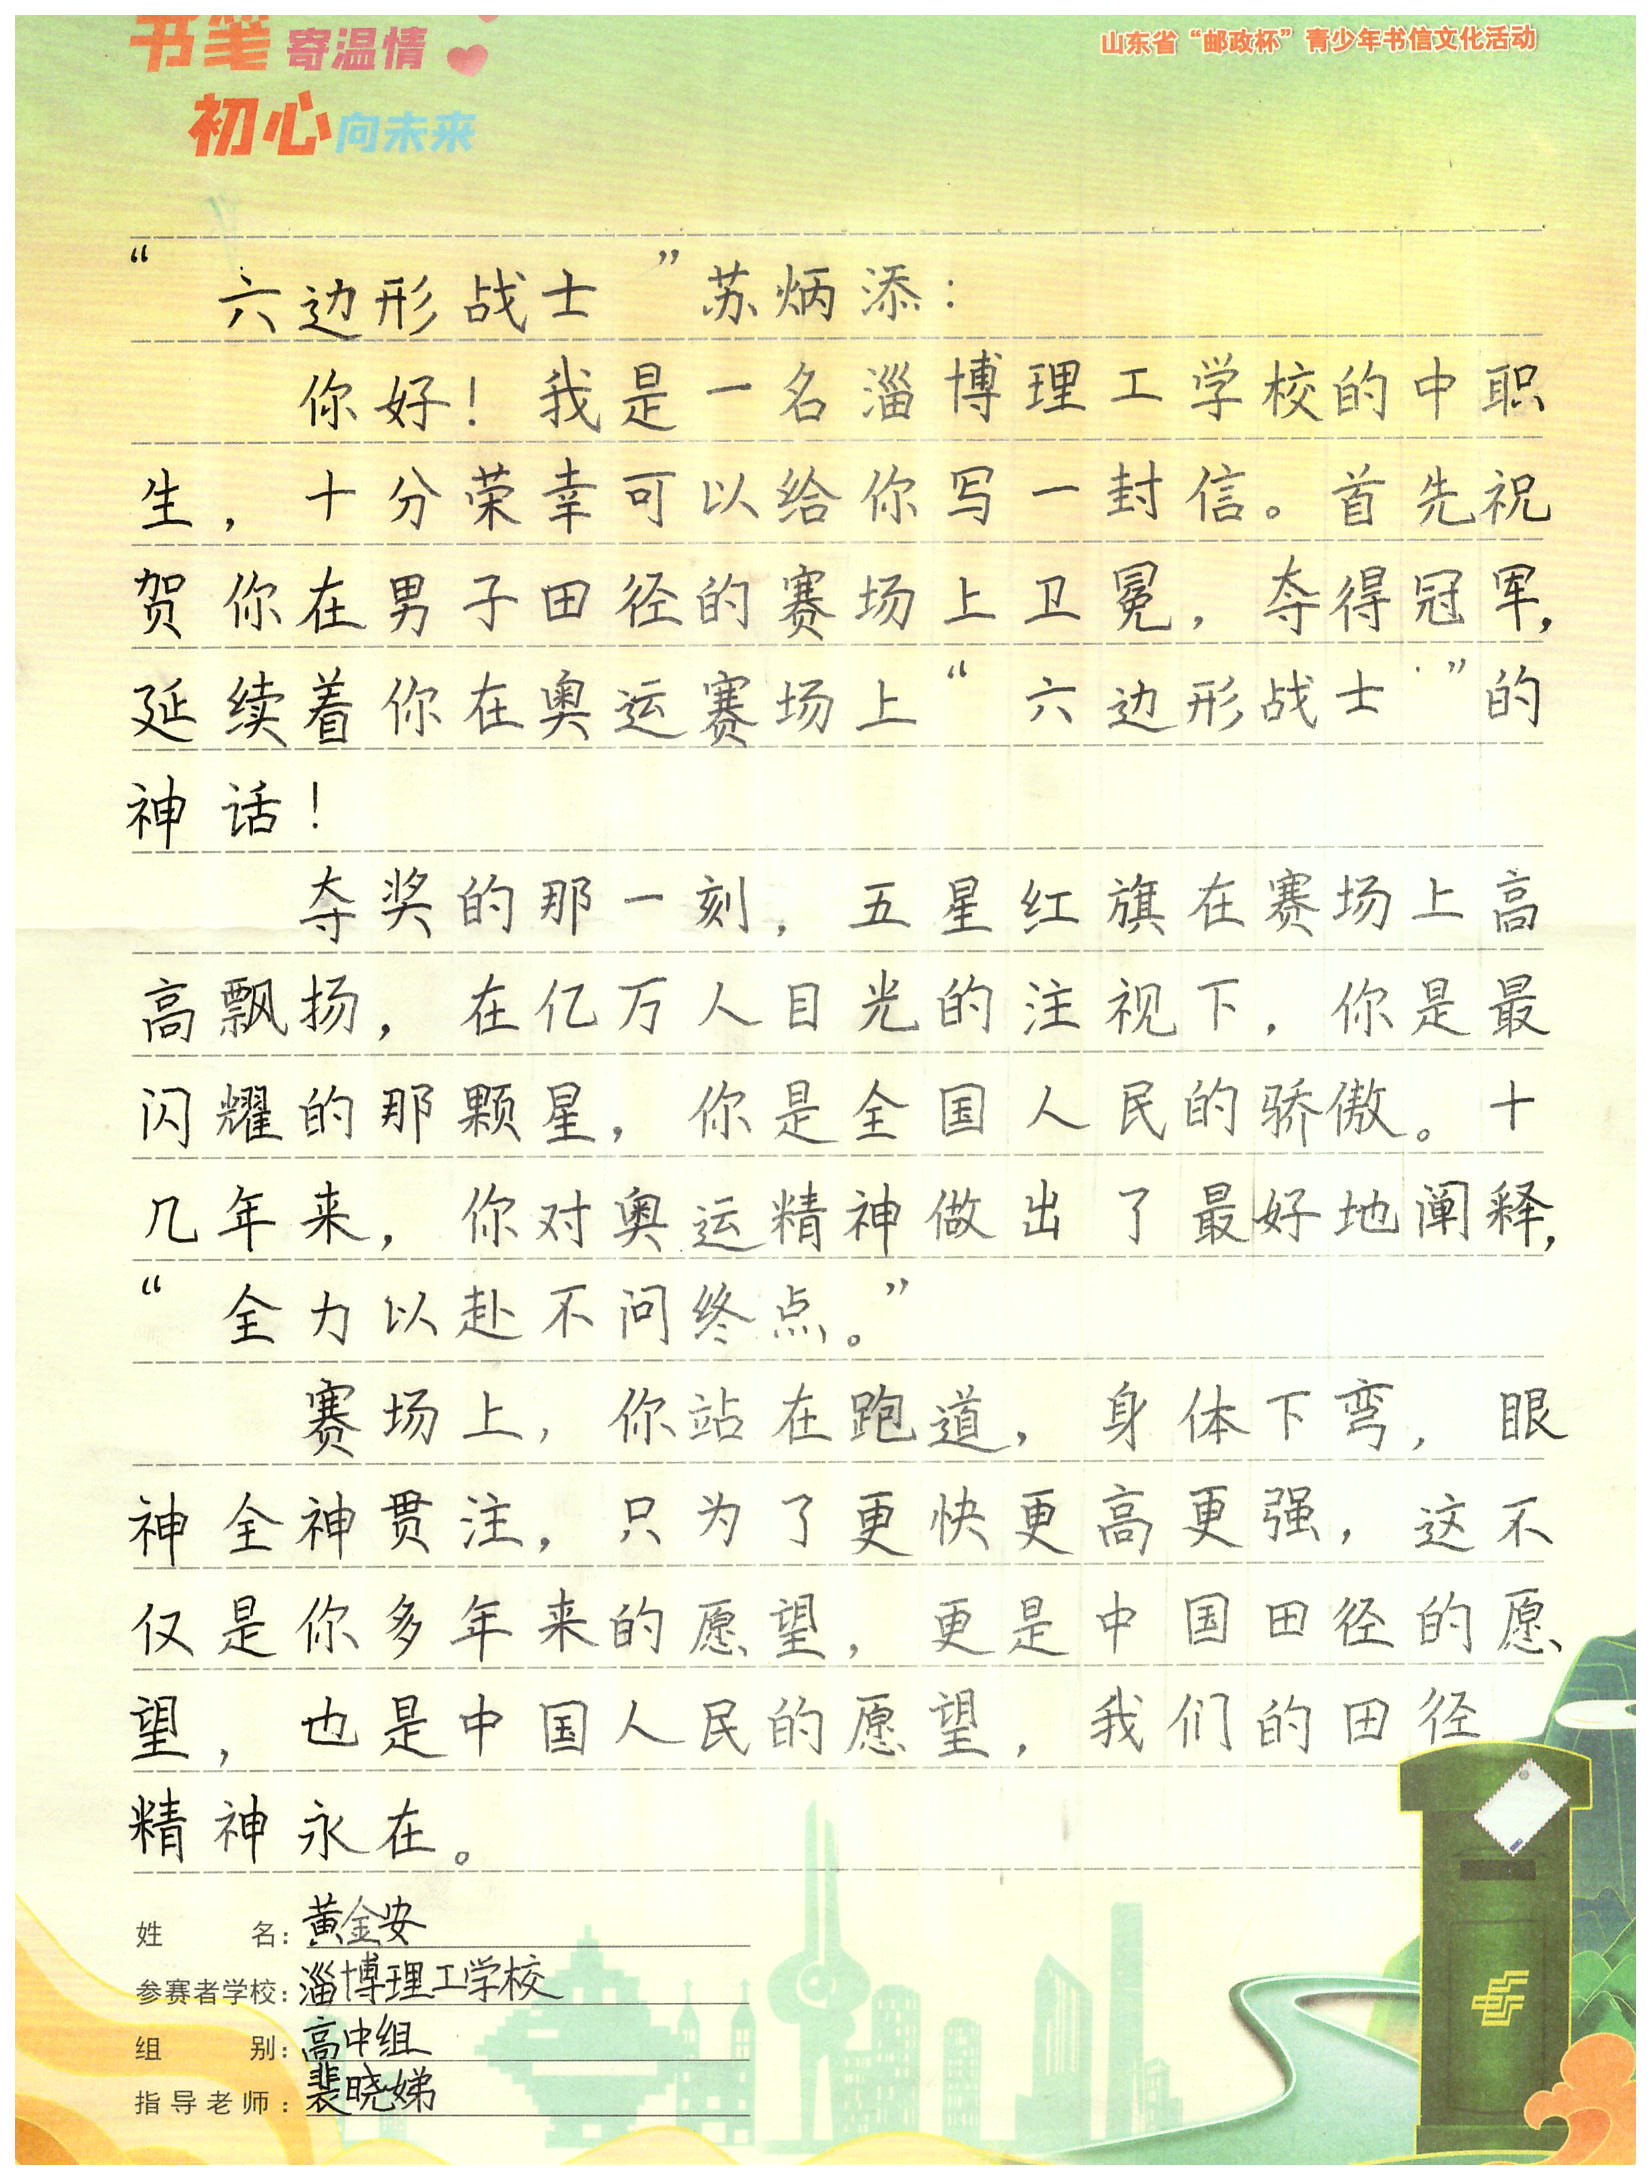 书笔寄温情
初心向未来
山东省“邮政杯”青少年书信文化活动
“六边形战士”苏炳添：
你好！我是一名淄博理工学校的中职
生，十分荣幸可以给你写一封信。首先祝
贺你在男子田径的赛场上卫冕，夺得冠军，
延续着你在奥运赛场上“六边形战士”的
神话！
夺奖的那一刻，五星红旗在赛场上高
高飘扬，在亿万人目光的注视下，你是最
闪耀的那颗星，你是全国人民的骄傲。十
几年来，你对奥运精神做出了最好地阐释，
“全力以赴不问终点。”
赛场上，你站在跑道，身体下弯，眼
神全神贯注，只为了更快更高更强，这不
仅是你多年来的愿望，更是中国田径的愿
望，也是中国人民的愿望，我们的田径
精神永在。
姓名：黄金安
参赛者学校：淄博理工学校
组别：高中组
指导老师：裴晓娣